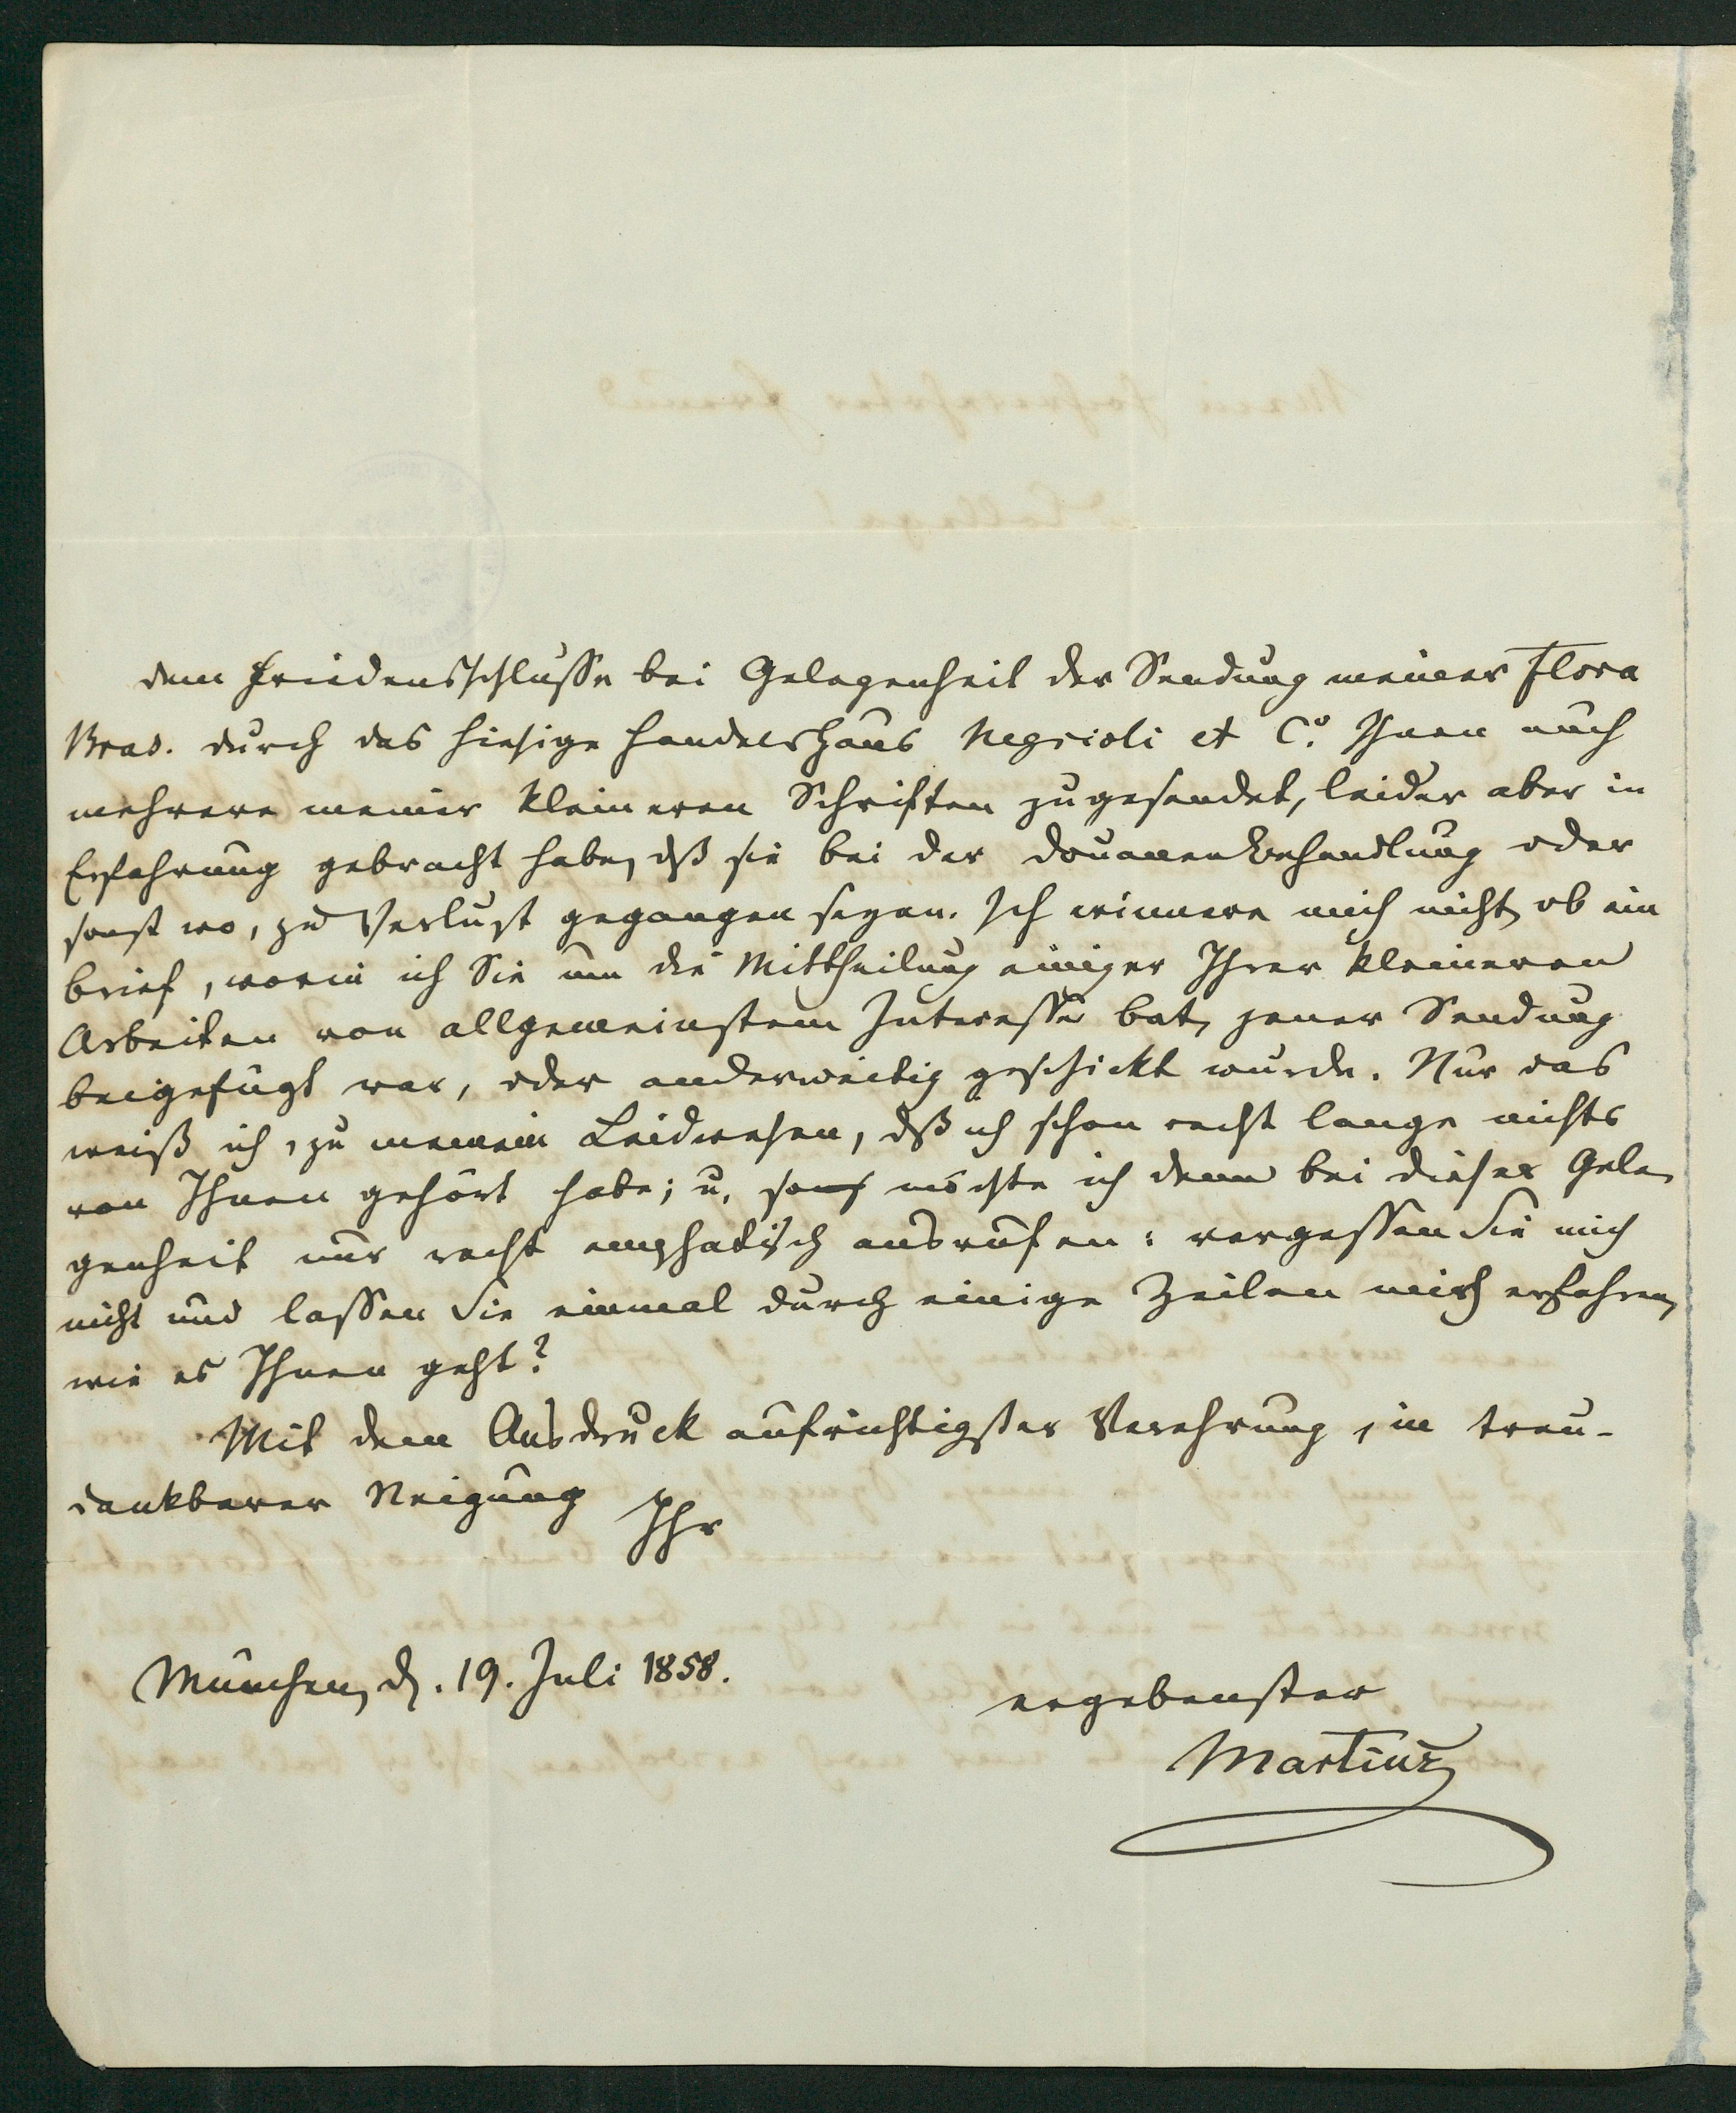 dem Friedensschlusse bei Gelegenheit der Sendung meiner Flora
Bras. durch das hiesige Handelshaus Negrioli et Co. Ihnen auch
mehrere meiner kleineren Schriften zugesendet, leider aber in
Erfahrung gebracht habe, dß sie bei der Douanenbehandlung oder
sonst wo, zu Verlust gegangen seyen. Ich erinnere mich nicht, ob ein
Brief, worin ich Sie um die Mittheilung einiger Ihrer kleineren
Arbeiten von allgemeinstem Interesse bat, jener Sendung
beigefügt war, oder anderweitig geschickt wurde. Nur das
weiß ich, zu meinem Leidwesen, dß ich schon recht lange nichts
von Ihnen gehört habe; u. so möchte ich denn bei dieser Gele
genheit nur recht emphatisch ausrufen: vergessen Sie mich
nicht und lassen Sie einmal durch einige Zeilen mich erfahren,
wie es Ihnen geht?
Mit dem Ausdruck aufrichtigster Verehrung, in treu-
dankbarer Neigung
Ihr
München, d. 19. Juli 1858.
ergebenster
Martius